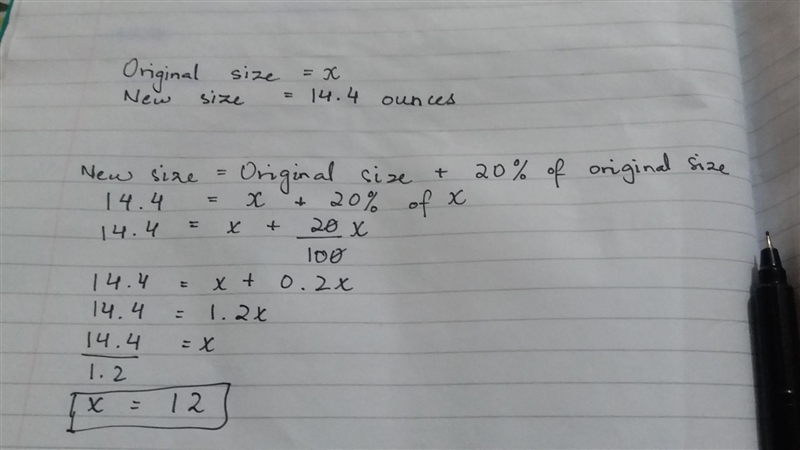 Original size = x
New size = 14.4 ounces
New size = Original size + 20% of original size
14.4 = x + 20% of x
14.4 = x + 20/100 x
14.4 = x + 0.2x
14.4 = 1.2x
14.4/1.2 = x
x = 12